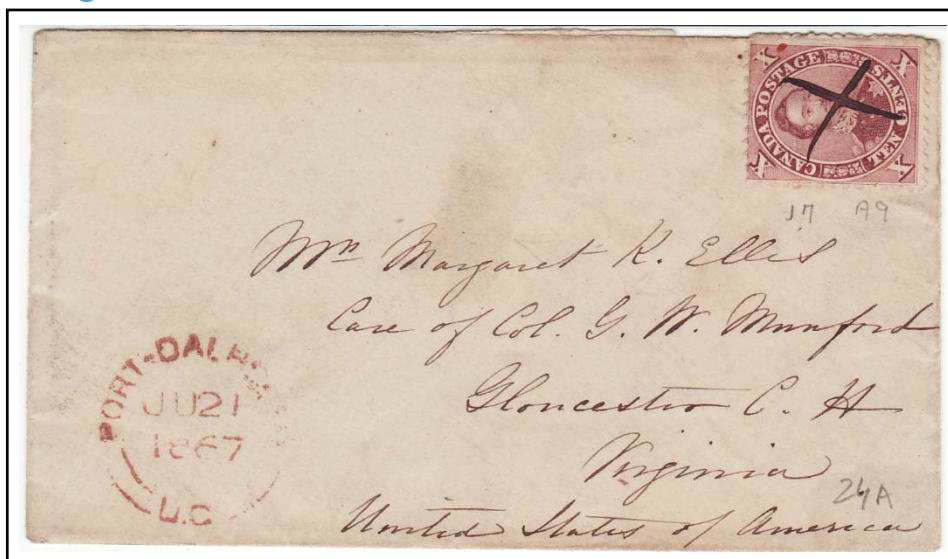 X CANADA POSTAGE X
X TEN CENTS X
17 A9
Mrs Margaret K. Ellis
Care of Col. G. W. Munford
Gloucester C. H
Virginia
24A
United States of America
PORT-DALHO
JU21
1867
U.C